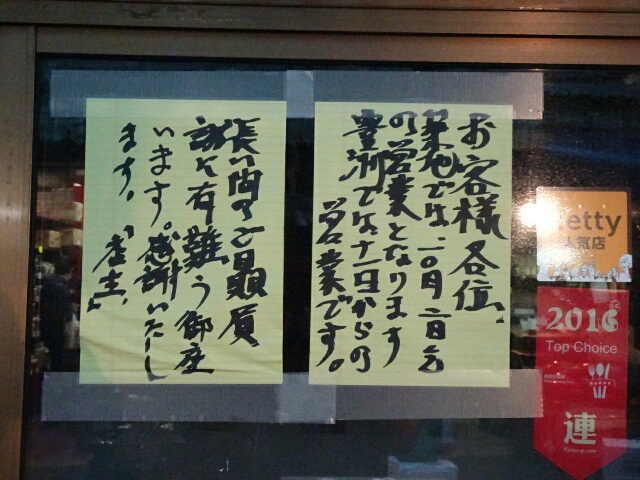 お客様各位、
築地では一〇月六日迄
の営業となります
豊洲では十一日からの
営業です。
長い間のご贔屓
誠に有難う御座
います。感謝いたし
ます。〝店主〟
etty
人気店
2016
Top Choice
連